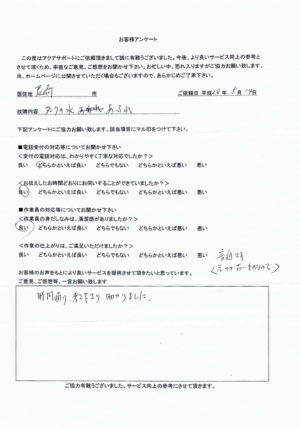 お客様アンケート
この度はアクアサポートにご依頼頂きまして誠に有難うございました。今後、より良いサービス向上の参考と
させて頂くため、率直なご意見、ご感想をお聞かせ下さい。お忙しい中、恐れ入りますがご協力お願い致します。
尚、ホームページに公開させていただく場合もございますので、あらかじめご了承下さい。
居住地 市 ご依頼日 平成28年 5月
故障内容 タンクの水 あふれ
下記アンケートにご協力お願い致します。該当項目にマル印をつけて下さい。
■電話受付の対応等についてお聞かせ下さい
<受付の電話対応は、わかりやすく丁寧な対応でしたか?>
良い どちらかといえば良い どちらでもない どちらかといえば悪い 悪い
<お伝えしたお時間どおりにお伺いすることができていましたか?>
良い どちらかといえば良い どちらでもない どちらかといえば悪い 悪い
■作業員の対応等についてお聞かせ下さい
<作業員の身だしなみは、清潔感がありましたか?>
良い どちらかといえば良い どちらでもない どちらかといえば悪い 悪い
<作業の仕上がりは、ご満足いただけましたか?>
良い どちらかといえば良い どちらでもない どちらかといえば悪い 悪い
お客様のお声をもとにより良いサービスを提供させて頂きたいと思っています。
ご意見、ご感想等、一言お願い致します
時間通り、来て下さり 助かりました。
ご協力有難うございました。サービス向上の参考にさせて頂きます。